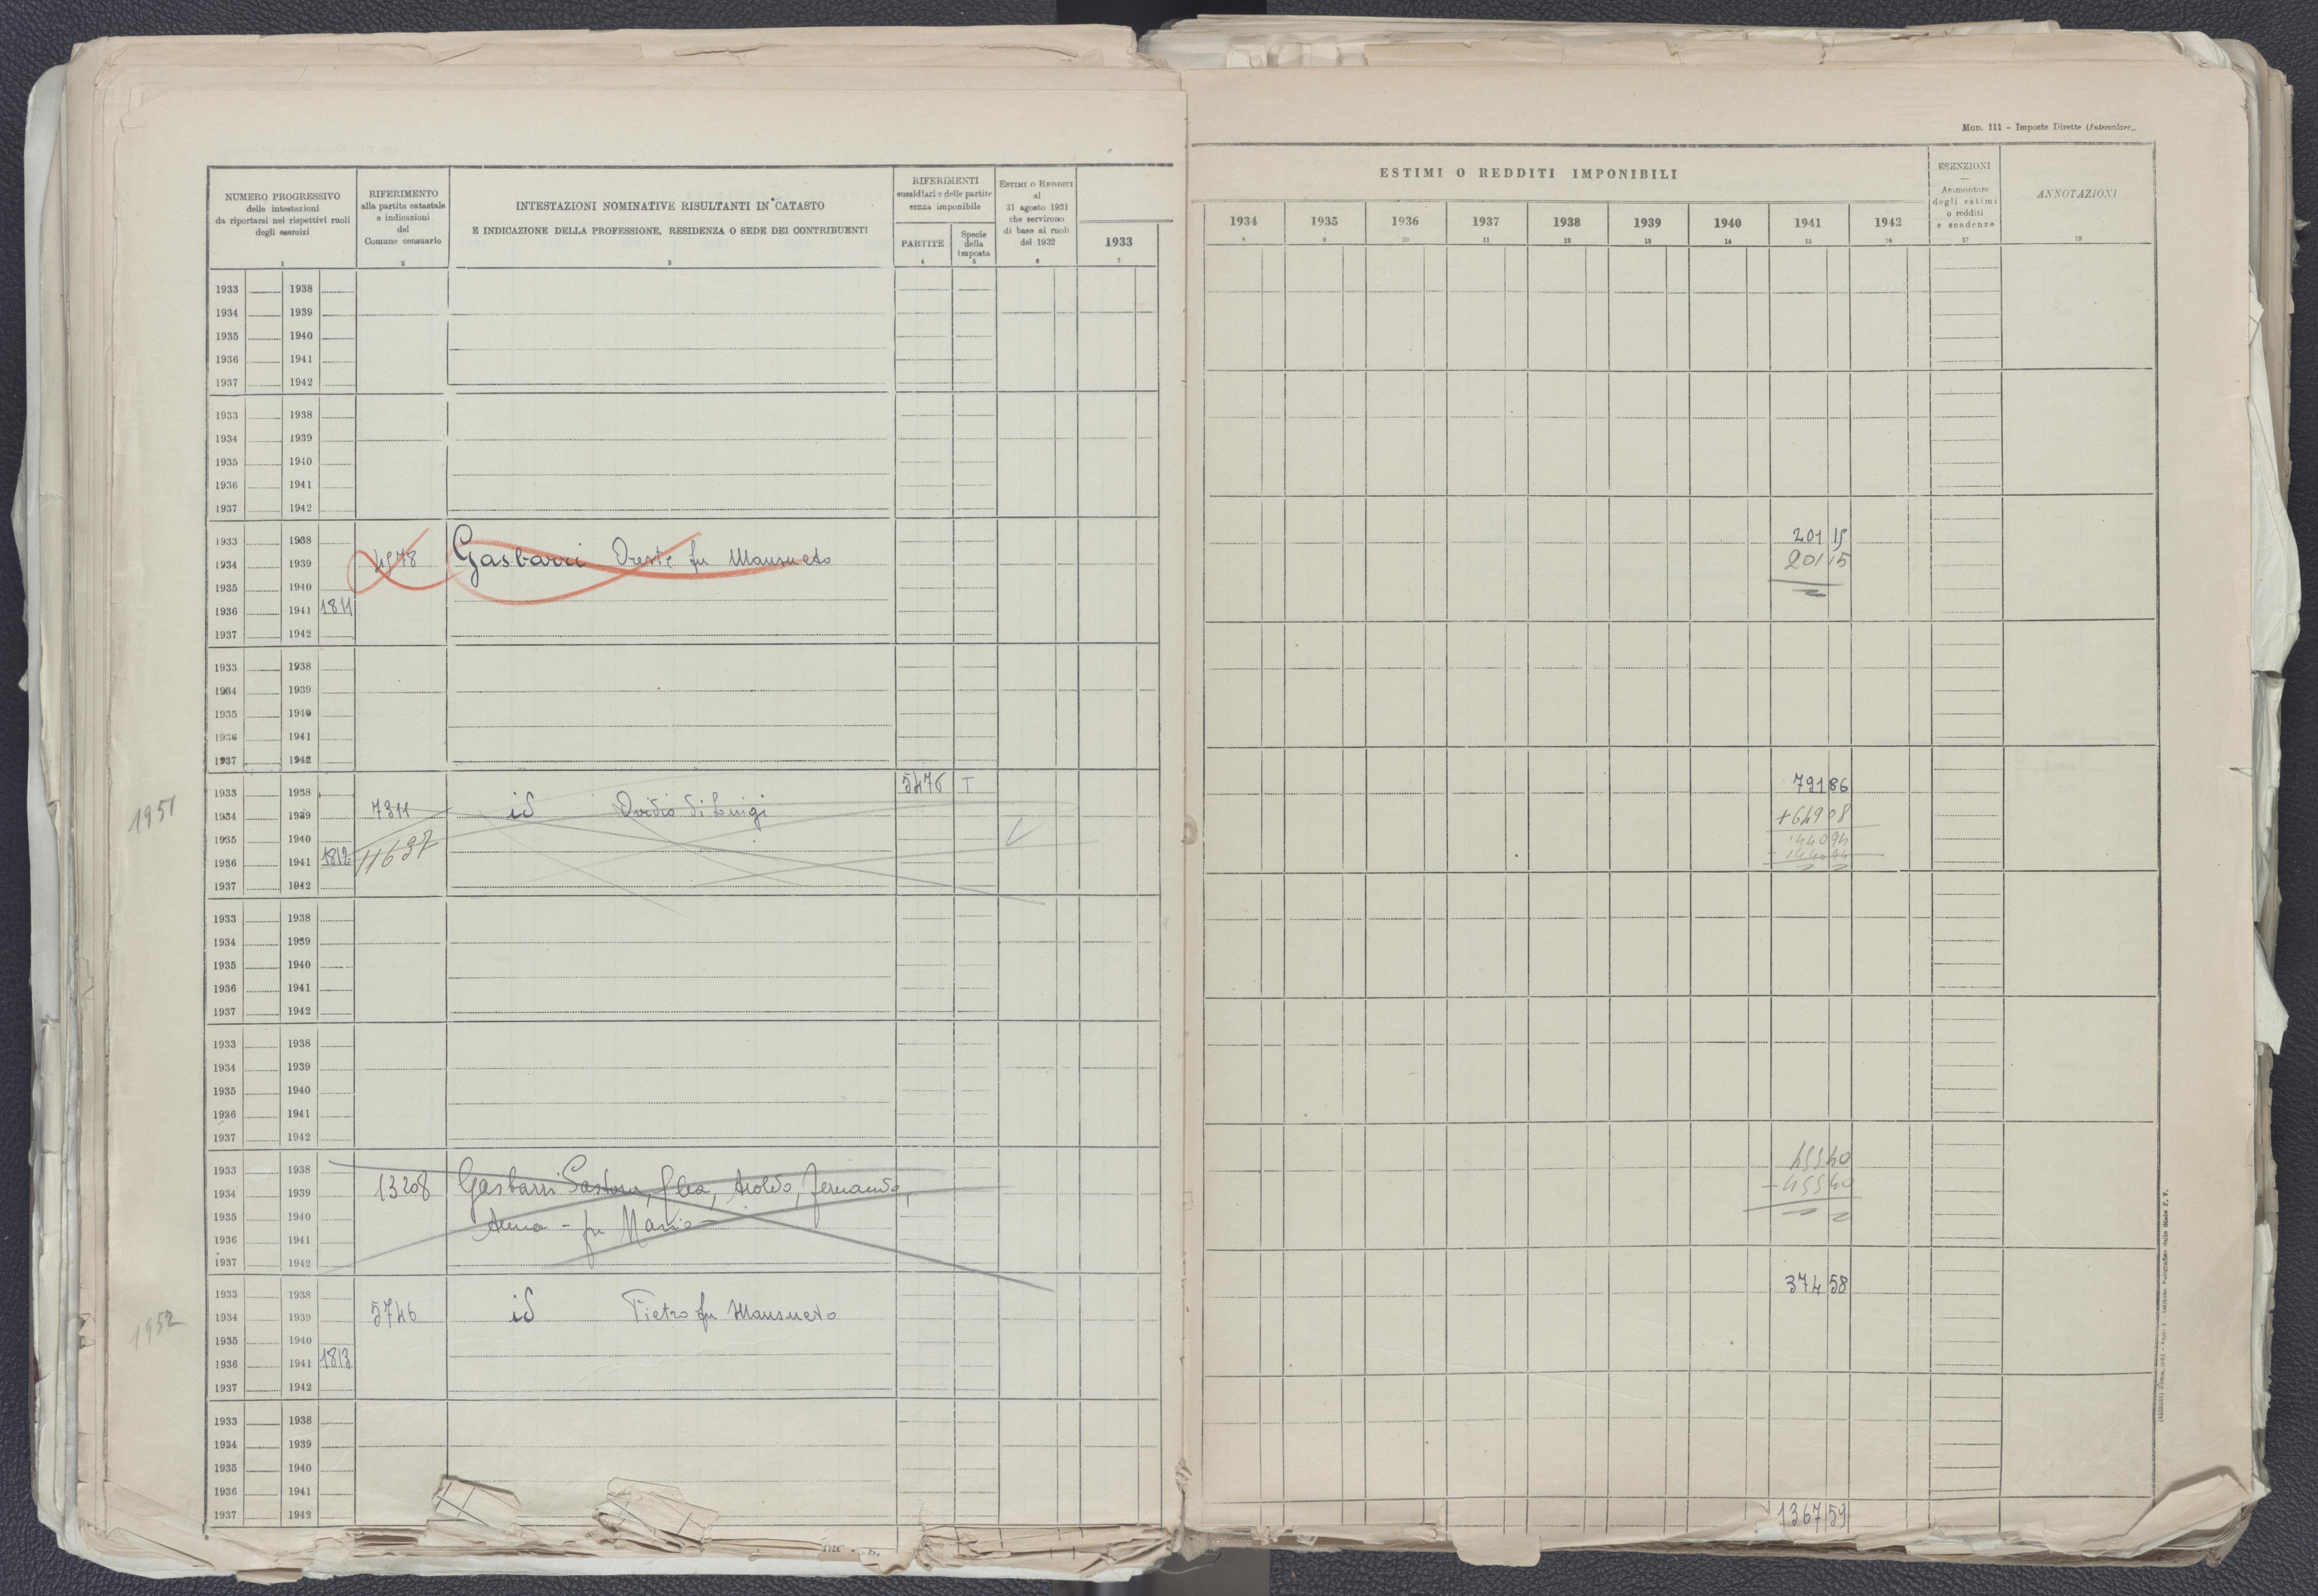 MOD. 111 - Imposte Dirette (Intercalare)
NUMERO PROGRESSIVO
delle intestazioni
da riportarsi nei rispettivi ruoli
degli esercizi
1
RIFERIMENTO
alla partita catastale
e indicazioni
del
Comune censuario
2
INTESTAZIONI NOMINATIVE RISULTANTI IN CATASTO
E INDICAZIONE DELLA PROFESSIONE, RESIDENZA O SEDE DEI CONTRIBUENTI
3
RIFERIMENTI
sussidiari e delle partite
senza imponibile
PARTITE
4
Specie
della
imposta
5
ESTIMI O REDDITI
al
31 agosto 1931
che servirono
di base ai ruoli
del 1932
6
1933
7
ESTIMI O REDDITI IMPONIBILI
1934 1935 1936 1937 1938 1939 1940 1941 1942
8 9 10 11 12 13 14 15 16
ESENZIONI
Ammontare
degli estimi
o redditi
e scadenze
17
ANNOTAZIONI
18
1933 1938
1934 1939
1935 1940
1936 1941
1937 1942
1933 1938
1934 1939
1935 1940
1936 1941
1937 1942
1933 1938 201 15
1934 1939 4578 Gasbarri Oreste fu Mansueto 201 15
1935 1940
1936 1941 1811
1937 1942
1933 1938
1934 1939
1935 1940
1936 1941
1937 1942
1933 1938 5476 T 791 86
1951 1934 1939 7311 id Ovidio di Luigi +649 08
1935 1940 1440 94
1936 1941 1812 11697 - 1440 94
1937 1942
1933 1938
1934 1939
1935 1940
1936 1941
1937 1942
1933 1938
1934 1939
1935 1940
1936 1941
1937 1942
1933 1938 455 40
1934 1939 13208 Gasbarri Aroldo, Fernanda, - 455 40
1935 1940 Anna - fu Mario
1936 1941
1937 1942
1933 1938 374 58
1952 1934 1939 5746 id Pietro fu Mansueto
1935 1940
1936 1941 1813
1937 1942
1933 1938
1934 1939
1935 1940
1936 1941
1937 1942
1367 59